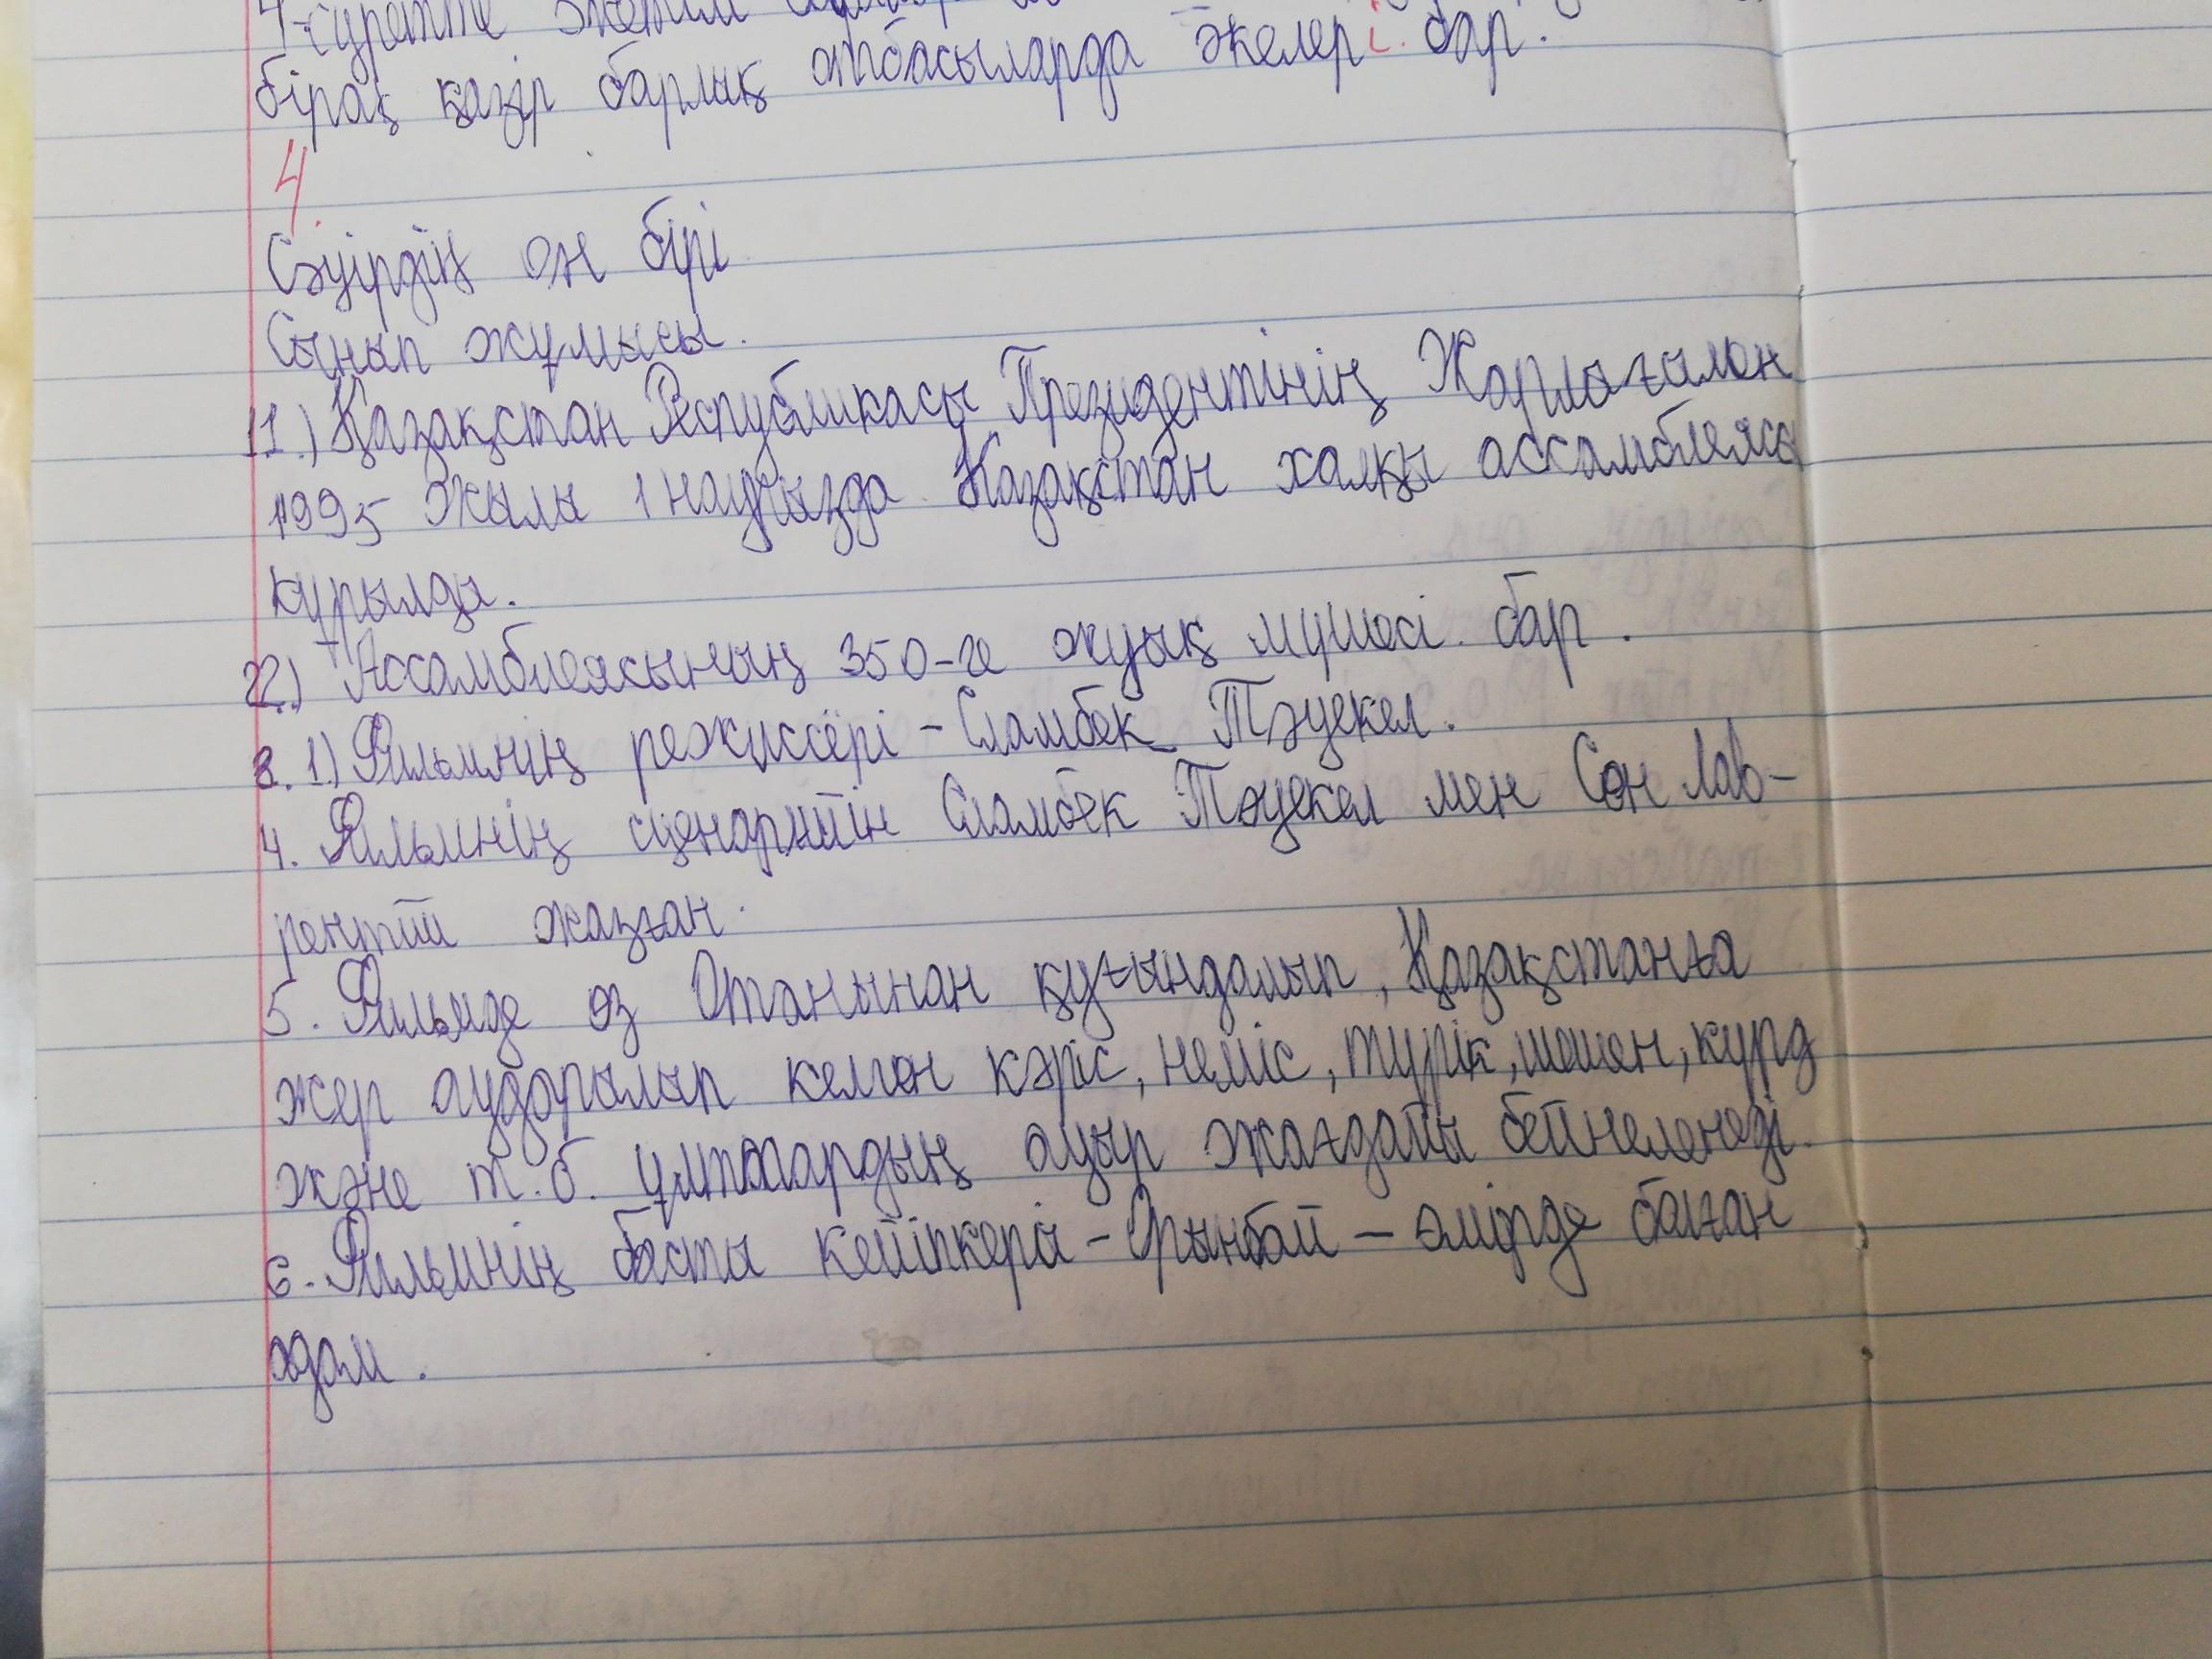 4-суретте жетім
бірақ қазір барлық отбасыларда әкелері бар.
4
Сәуірдің он бірі
Сынып жұмысы.
1.) Қазақстан Республикасы Президентінің Жарлығымен
1995 жылы 1 наурызда Қазақстан халқы ассамблеясы
құрылды.
2.) Ассамблеясының 350-ге жуық мүшесі бар.
8. 1) Фильмнің режиссёрі - Сламбек Тәуекел.
4. Фильмнің сценарийін Сламбек Тәуекел мен Сон Лав-
рентий жазған.
5. Фильмде өз Отанынан қуғындалып, Қазақстанға
жер аударылып келген кәріс, неміс, түрік, шешен, курд
және т.б. ұлттардың ауыр жағдайы бейнеленеді.
6. Фильмнің басты кейіпкері - Орынбай - өмірде болған
адам.